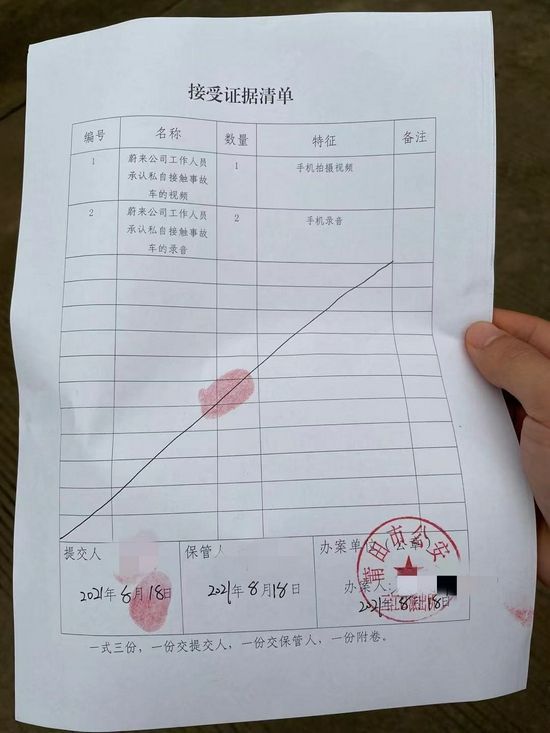 接受证据清单
编号 名称 数量 特征 备注
1 蔚来公司工作人员 1 手机拍摄视频
承认私自接触事故
车的视频
2 蔚来公司工作人员 2 手机录音
承认私自接触事故
车的录音
提交人 保管人 办案单位 公章
办案人:
2021年8月18日 2021年8月18日 2021年8月18日
莆田市公安
派出所
一式三份,一份交提交人,一份交保管人,一份附卷。